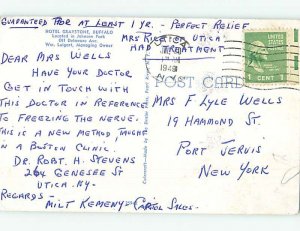 GUARANTEED FOR AT LEAST 1 YR. - PERFECT RELIEF
HOTEL GRAYSTONE, BUFFALO
Located in Johnson Park
Off Delaware Ave.
Wm. Seigert, Managing Owner
MRS RICHTER UTICA
HAD TREATMENT
DEAR MRS WELLS
HAVE YOUR DOCTOR
GET IN TOUCH WITH
THIS DOCTOR IN REFERENCE
TO FREEZING THE NERVE.
THIS IS A NEW METHOD TAUGHT
IN A BOSTON CLINIC.
DR. ROBT. H. STEVENS
264 GENESEE ST
UTICA. NY.
REGARDS -
MILT KEMENY - CAPITOL SALES.
1949
1 CENT 1
POST CARD
MRS F LYLE WELLS
19 HAMMOND ST.
PORT JERVIS
NEW YORK